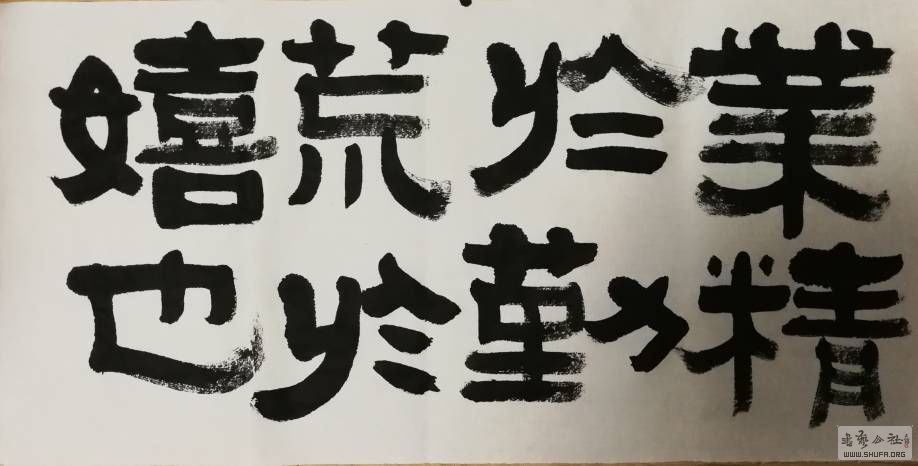 業精
於勤
荒於
嬉也
书艺公社
WWW.SHUFA.ORG